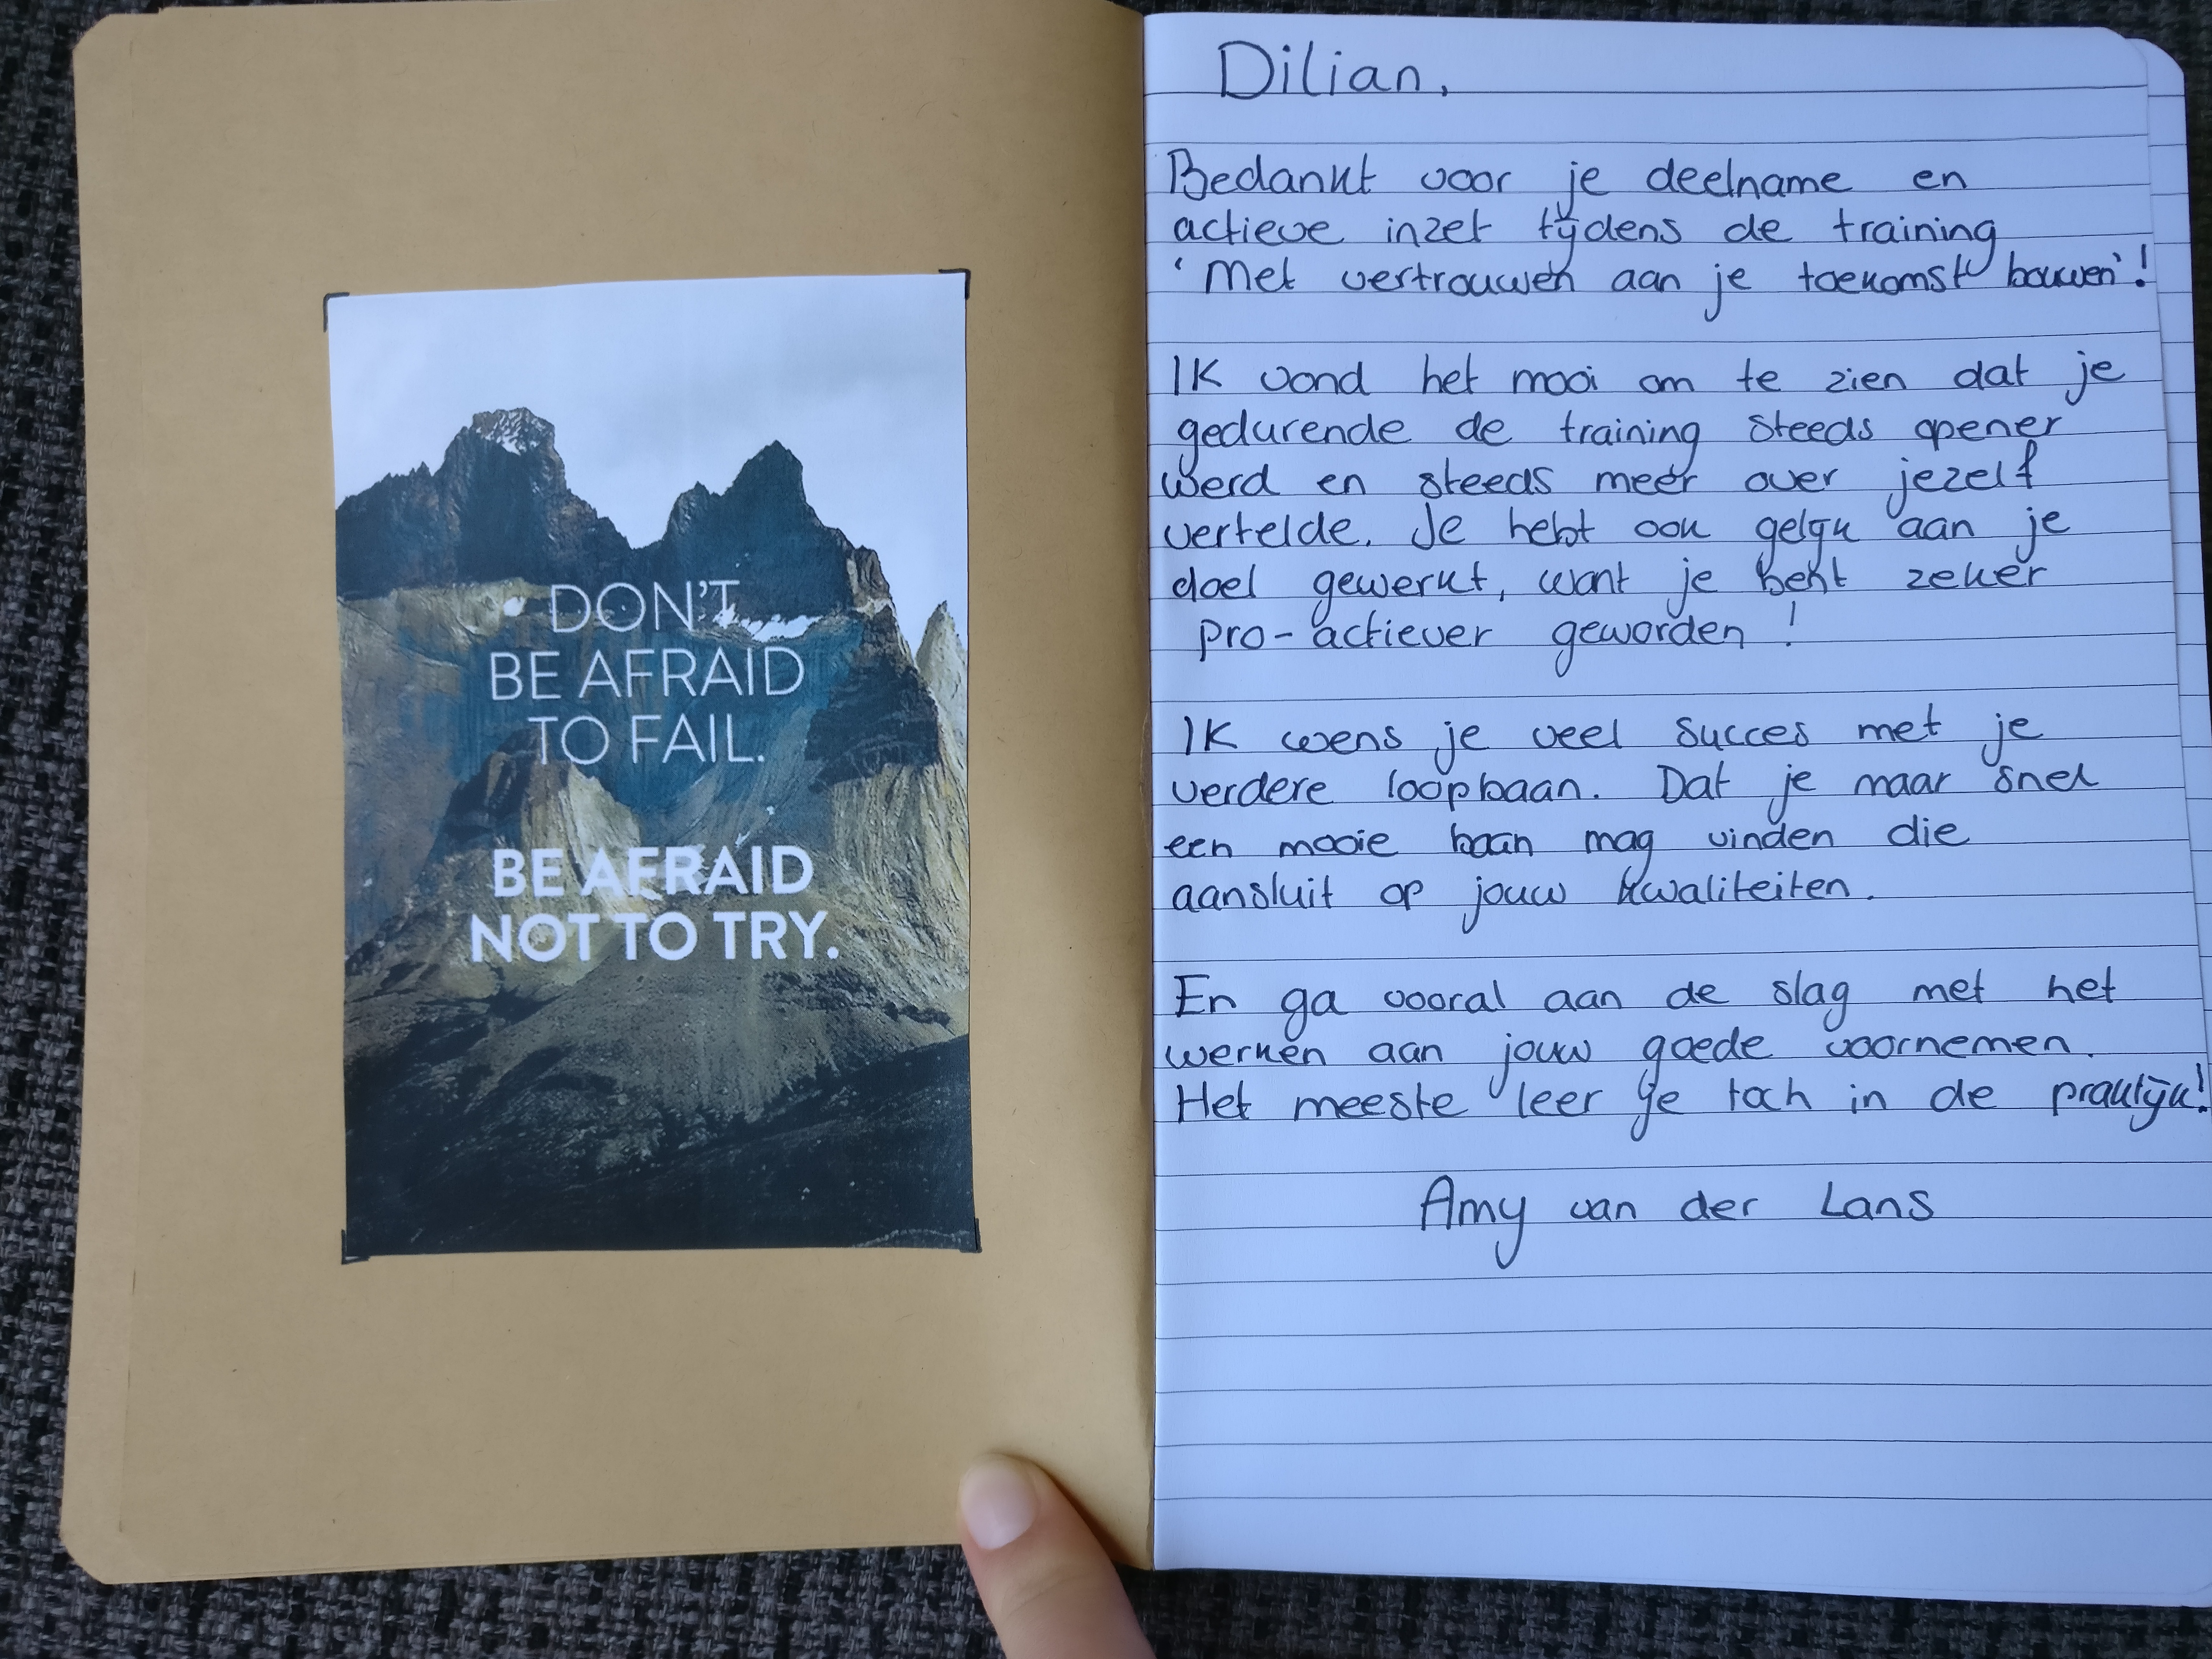 DON'T
BE AFRAID
TO FAIL.
BE AFRAID
NOT TO TRY.
Dilian,
Bedankt voor je deelname en
actieve inzet tijdens de training
'Met vertrouwen aan je toekomst bouwen'!
Ik vond het mooi om te zien dat je
gedurende de training steeds opener
werd en steeds meer over jezelf
vertelde. Je hebt ook gelijk aan je
doel gewerkt, want je bent zeker
pro-actiever geworden!
Ik wens je veel succes met je
verdere loopbaan. Dat je maar snel
een mooie baan mag vinden die
aansluit op jouw kwaliteiten.
En ga vooral aan de slag met het
werken aan jouw goede voornemen.
Het meeste leer je toch in de praktijk!
Amy van der Lans